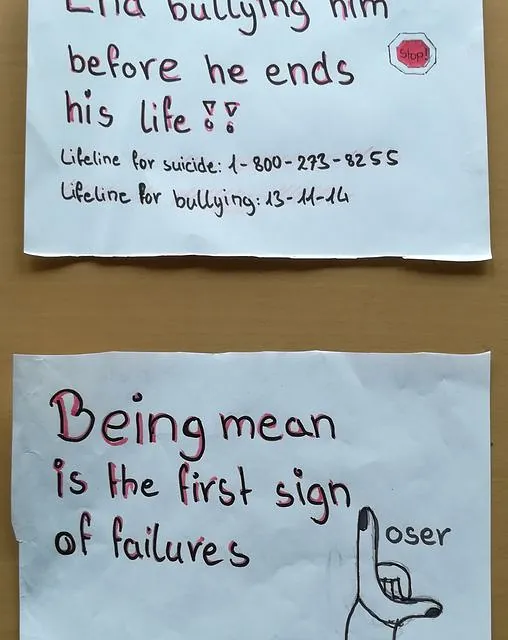 End bullying him
before he ends
his life !!
Stop!
Lifeline for suicide: 1-800-273-8255
Lifeline for bullying: 13-11-14
Being mean
is the first sign
of failures
Loser